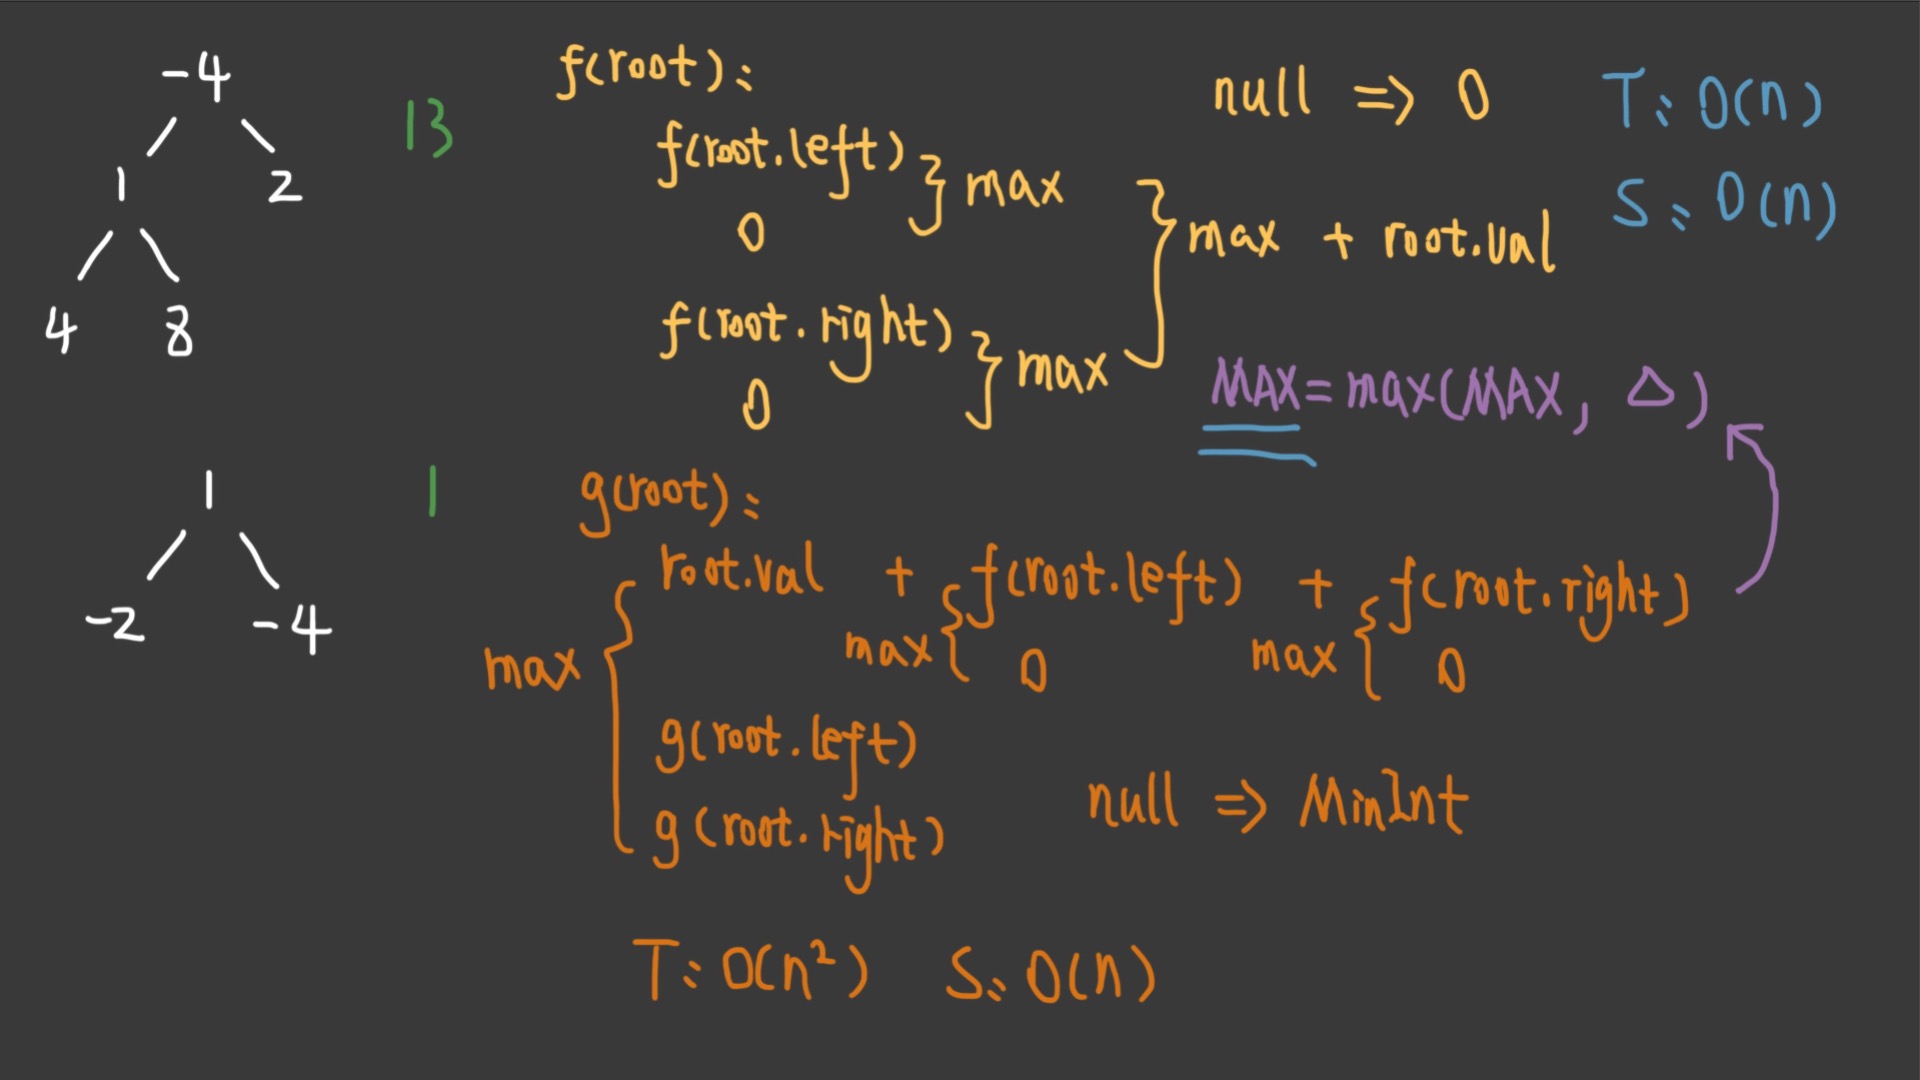 -4
1 2
4 8
13
f(root):
f(root.left)
0
} max
f(root.right)
0
} max
} max + root.val
null => 0
T: O(n)
S: O(n)
MAX = max(MAX, Δ)
1
-2 -4
1
g(root):
max {
root.val + max { f(root.left) 0 + max { f(root.right) 0
g(root.left)
g(root.right)
null => MinInt
T: O(n²) S: O(n)